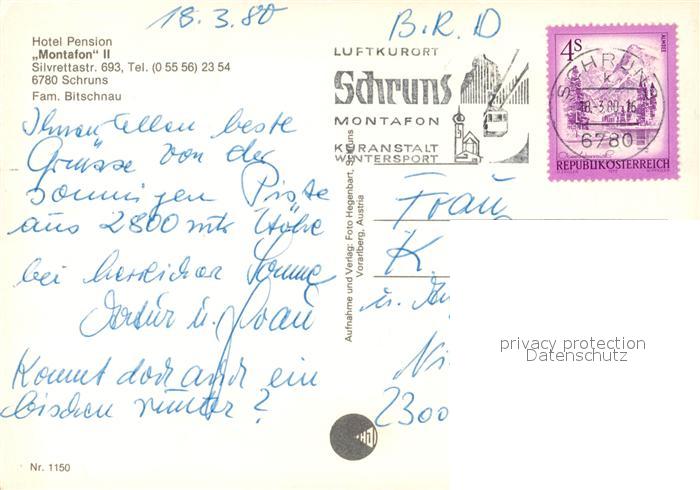 18.3.80
B.R.D
Hotel Pension
„Montafon" II
Silvrettastr. 693, Tel. (0 55 56) 23 54
6780 Schruns
Fam. Bitschnau
Ihnen allen beste
Grüsse von der
sonnigen Piste
aus 2800 mtr Höhe
bei herrlicher Sonne
Artur u. Frau
Kommt doch auch ein
bischen runter?
Nr. 1150
LUFTKURORT
Schruns
MONTAFON
KURANSTALT
WINTERSPORT
4S
SCHRUNS
18.-3.80-16
6780
REPUBLIK ÖSTERREICH
Aufnahme und Verlag: Foto Hegenbart, Schruns
Vorarlberg, Austria
Frau
K.
u.
2300
privacy protection
Datenschutz